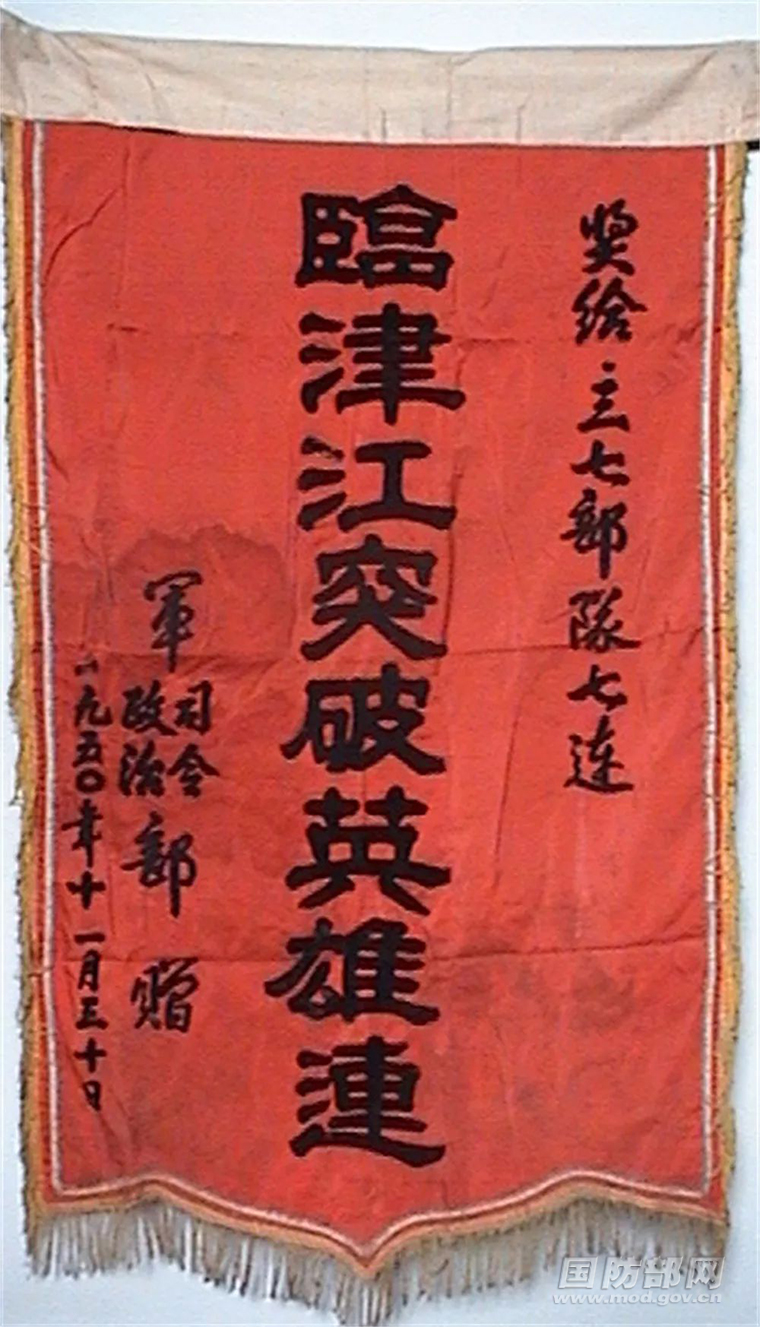 奖给三七部隊七連
臨津江突破英雄連
軍司令政治部赠
一九五〇年十一月三十日
国防部网
www.mod.gov.cn